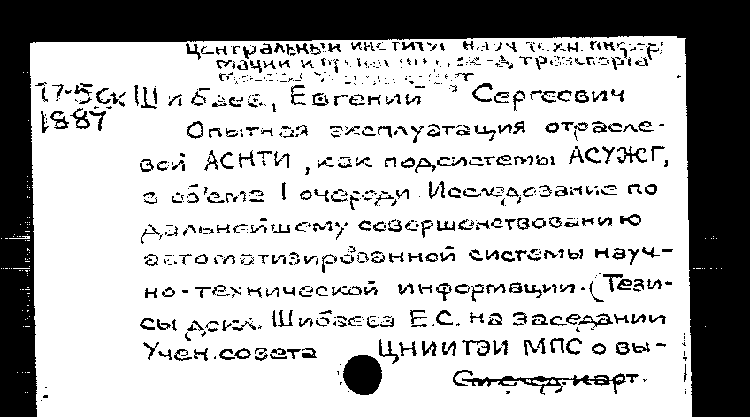 Центральный институт науч техн. информ
мации и пропаганды ж-д. транспорта
17-5ск Шибаев, Евгений Сергеевич
1887
Опытная эксплуатация отрасле-
вой АСНТИ, как подсистемы АСУЖТ,
в объеме I очереди Исследование по
дальнейшему совершенствованию
автоматизированной системы науч-
но-технической информации. (Тези-
сы докл. Шибаева Е.С. на заседании
Учен. совета ЦНИИТЭИ МПС о вы-
См след карт.